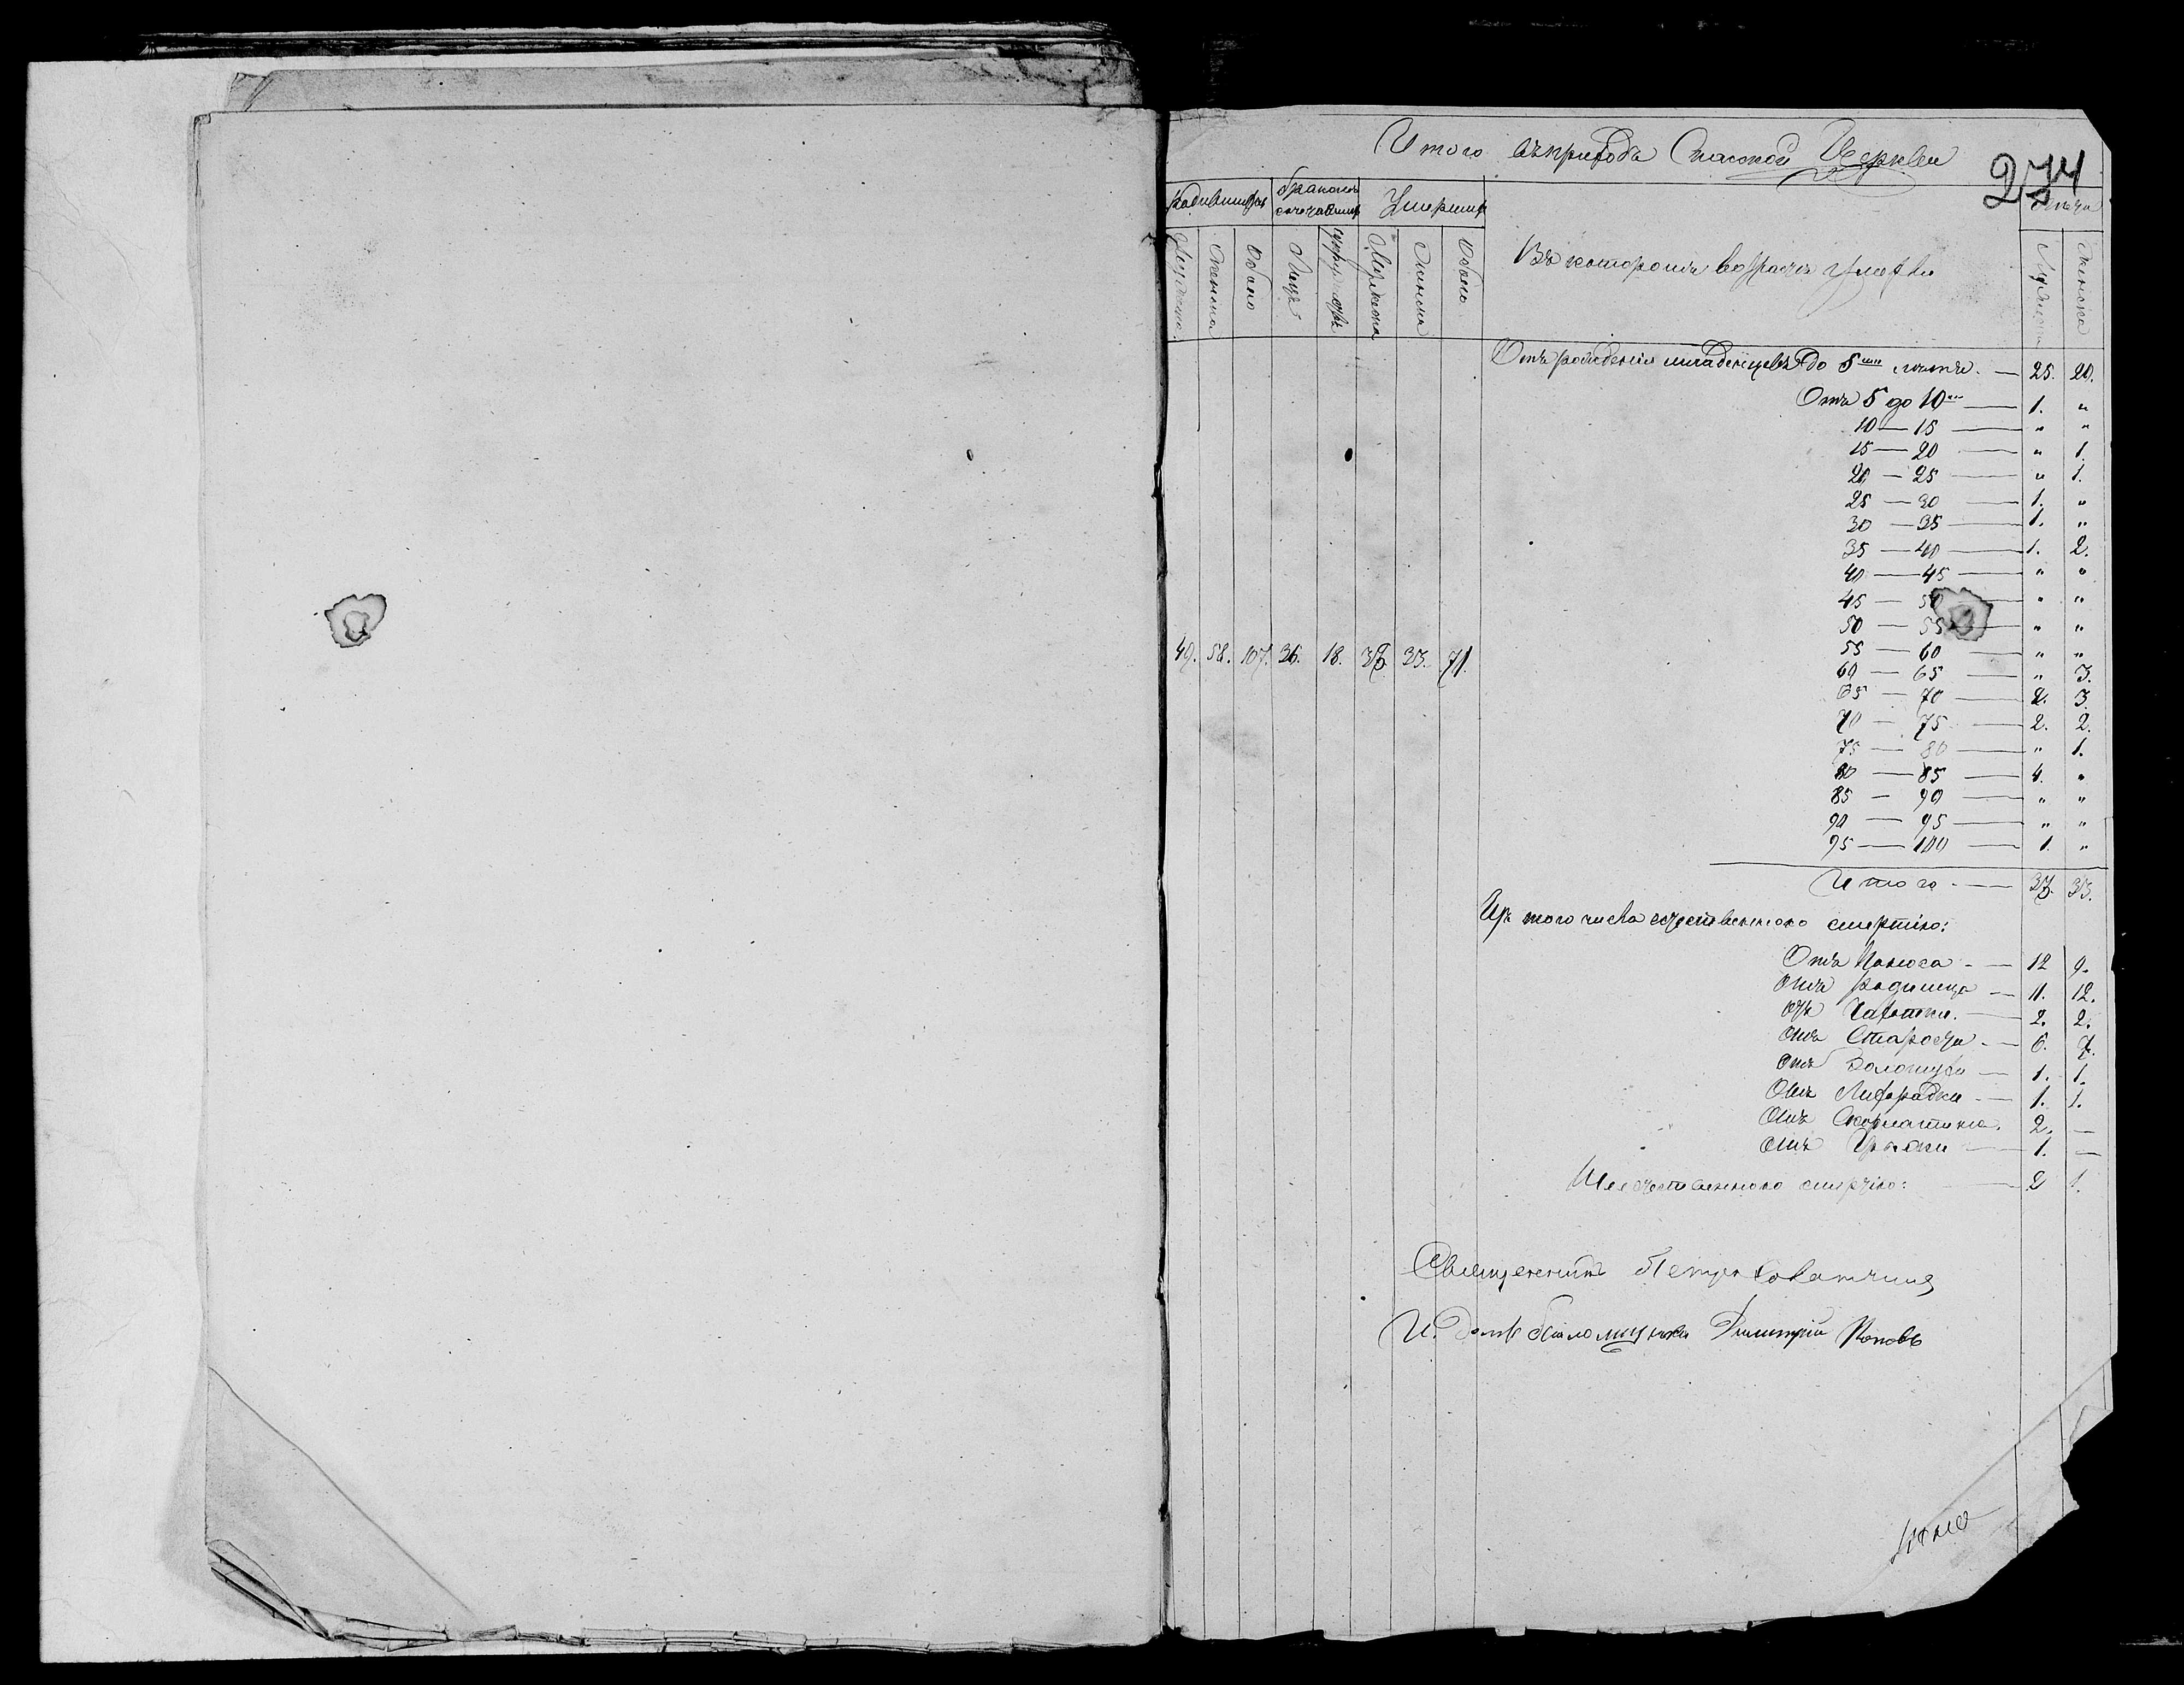 Итого въ приходѣ Спаской Церкви
274
Родившихся
бракомъ сочетавших
Умерших
Мужеска
Женска
Обоего
Лицъ
Супружествъ
Мужеска
Женска
Обоего
Въ которомъ возрастѣ умерли
Мужеска
Женска
Отъ рожденія младенцевъ до 5ти лѣтъ — 25. 20.
Отъ 5 до 10ти — 1. "
10 — 15 — " "
15 — 20 — " 1.
20 — 25 — " 1.
25 — 30 — 1. "
30 — 35 — 1. "
35 — 40 — 1. 2.
40 — 45 — " "
45 — 50 — " "
50 — 55 — " "
55 — 60 — " "
49. 58. 107. 36. 18. 38. 33. 71.
60 — 65 — " 3.
65 — 70 — 2. 3.
70 — 75 — 2. 2.
75 — 80 — " 1.
80 — 85 — 4. "
85 — 90 — " "
90 — 95 — " "
95 — 100 — 1. "
Итого — 38. 33.
Изъ того числа естественною смертію:
Отъ Поноса — 12 9.
Отъ Родимца — 11. 12.
Отъ Чахотки. — 2. 2.
Отъ Старости — 6. 7.
Отъ Золотухи — 1. 1.
Отъ Лихорадки — 1. 1.
Отъ 2. —
Отъ 1. —
Не естественною смертію: — 2 1.
Священникъ Петръ
И. долж. Псаломщика Димитрій Поповъ